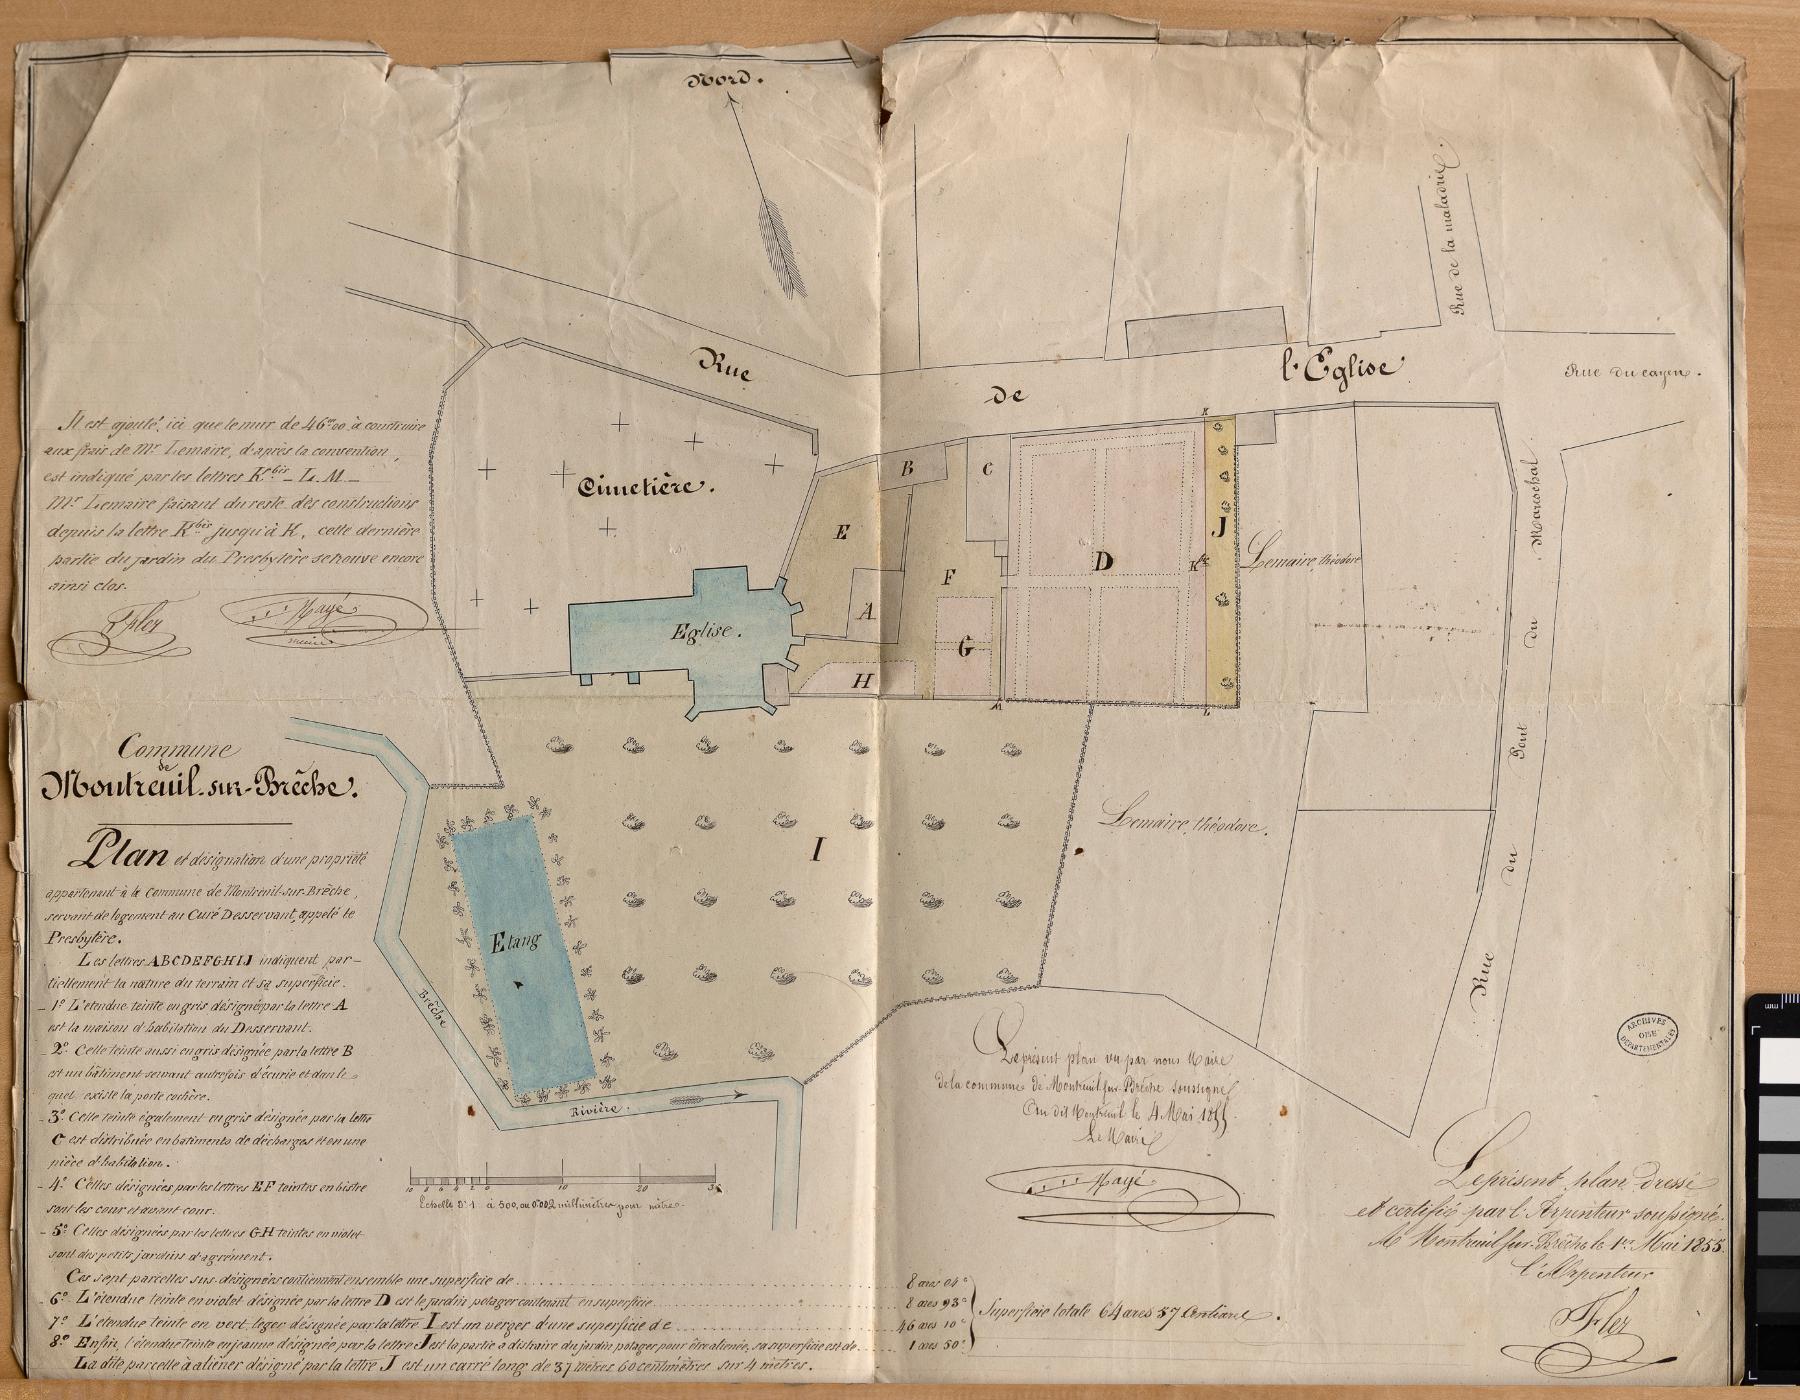 Nord.
Rue de la maladrie.
Rue
de
l'Eglise
Rue du cayen.
Il est ajouté, ici que le mur de 46m00 à construire
aux frais de Mr Lemaire, d'après la convention,
est indiqué par les lettres Kbis _ L. M _
Mr Lemaire faisant du reste des constructions
depuis la lettre Kbis jusqu'à K, cette dernière
partie du jardin du Presbytère se trouve encore
ainsi clos.
Hayé
maire
Cimetière.
Eglise.
A
B
C
D
E
F
G
H
I
J
K
Kbis
L
M
Lemaire, théodore
Lemaire, théodore.
Rue du Pont du Marechal
Commune
de
Montreuil-sur-Brêche.
Plan et désignation d'une propriété
appartenant à la Commune de Montreuil-sur-Brêche,
servant de logement au Curé Desservant, appelé le
Presbytère.
Les lettres ABCDEFGHIJ indiquent par-
tiellement la nature du terrain et sa superficie.
1º L'étendue teinte en gris désigné par la lettre A
est la maison d'habitation du Desservant.
2º Celle teinte aussi en gris désignée par la lettre B
est un bâtiment servant autrefois d'écurie et dans le-
quel existe la porte cochère.
3º Celle teinte également en gris désignée par la lettre
C est distribuée en batiments de décharges et en une
pièce d'habitation.
4º Celles désignées par les lettres EF teintes en bistre
sont les cour et avant cour.
5º Celles désignées par les lettres GH teintes en violet
sont des petits jardins d'agrément.
Ces sept parcelles sus-désignées contiennent ensemble une superficie de 8 ares 04c
6º L'étendue teinte en violet désignée par la lettre D est le jardin potager contenant en superficie 8 ares 93c
7º L'étendue teinte en vert leger désignée par la lettre I est un verger d'une superficie de 46 ares 10c
8º Enfin, l'étendue teinte en jeaune désignée par la lettre J est la partie à distraire du jardin potager pour être aliénée, sa superficie est de 1 ares 50c
La dite parcelle à aliéner désigné par la lettre J est un carré long de 37 mètres 60 centimètres sur 4 mètres.
Superficie totale 64 ares 57 Centiare.
Etang
Brêche
Rivière.
10 8 6 4 2 0 10 20 30
Echelle de 1 à 500, ou 0m002 millimètres pour mètre.
Le présent plan vu par nous Maire
de la commune de Montreuil-sur-Brêche soussigné
Au dit Montreuil le 4 Mai 1855.
Le Maire
Hayé
Le présent plan dressé
et certifié par l'Arpenteur soussigné.
A Montreuil-sur-Brêche le 1er Mai 1855.
l'Arpenteur
ARCHIVES
OISE
DÉPARTEMENTALES
mm